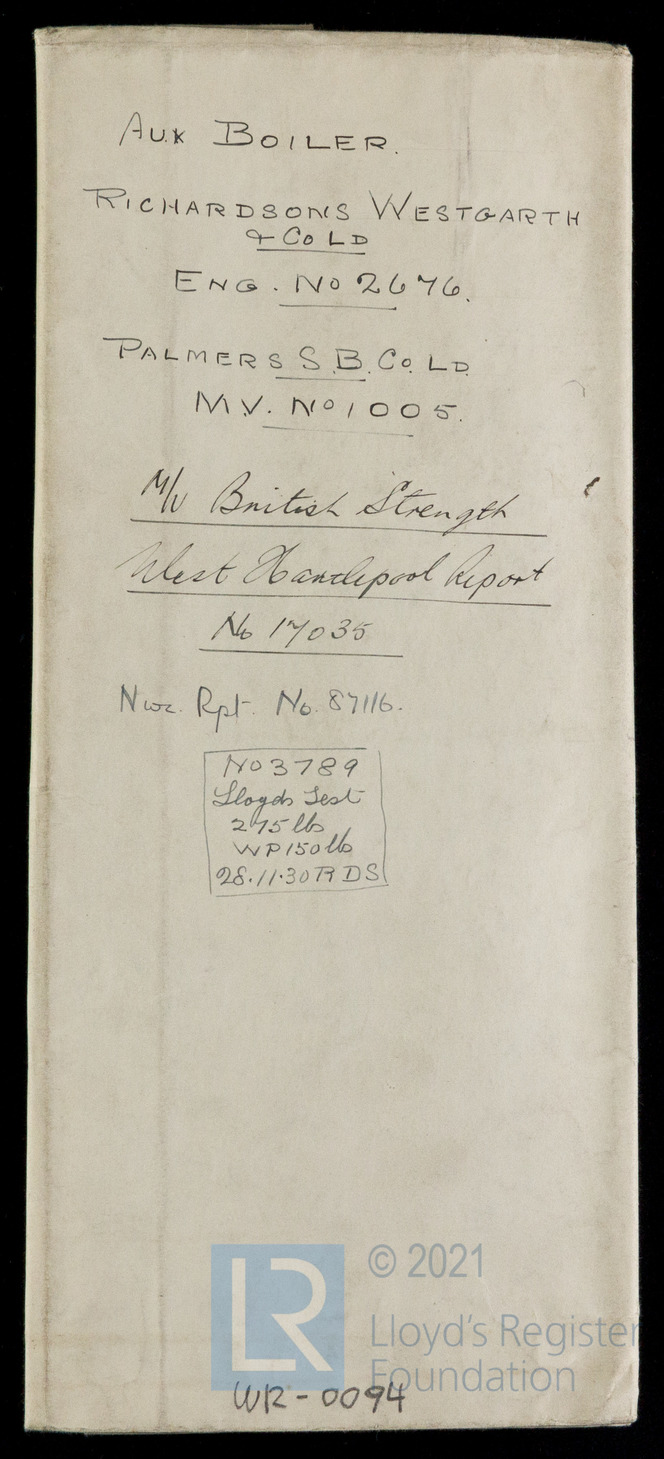 AUX BOILER.
RICHARDSONS WESTGARTH
& Co LD
ENG. No 2676.
PALMERS S.B. Co. LD
M.V. No 1005.
M/V British Strength
West Hartlepool Report
No 17035
Nwc. Rpt. No. 87116.
No 3789
Lloyds Test
275 lbs
WP 150 lb
28.11.30 R D S
LR
© 2021
Lloyd's Register
Foundation
WR-0094